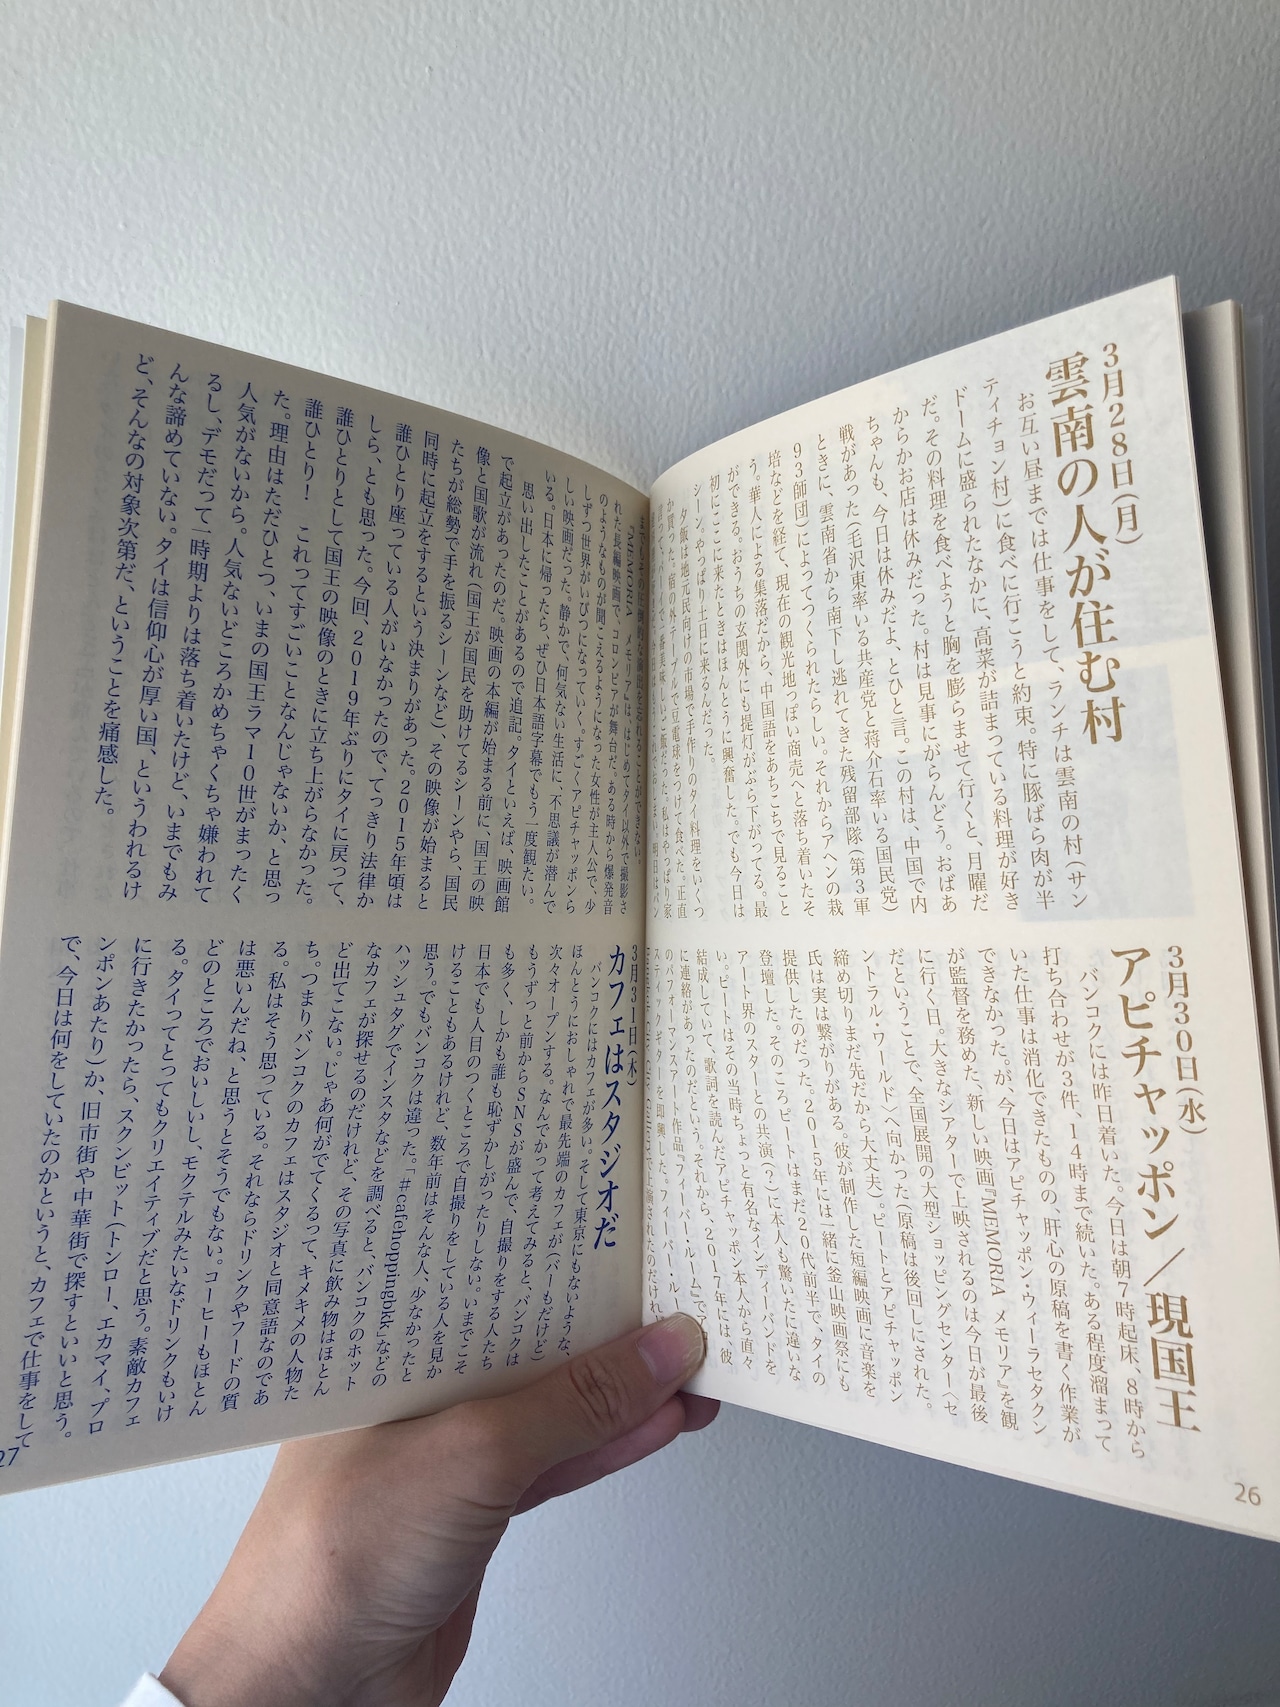 3月28日(月)
雲南の人が住む村
お互い昼までは仕事をして、ランチは雲南の村(サン
ティチョン村)に食べに行こうと約束。特に豚ばら肉が半
ドームに盛られたなかに、高菜が詰まっている料理が好き
だ。その料理を食べようと胸を膨らませて行くと、月曜だ
からかお店は休みだった。村は見事にがらんどう。おばあ
ちゃんも、今日は休みだよ、とひと言。この村は、中国で内
戦があった(毛沢東率いる共産党と蒋介石率いる国民党)
ときに、雲南省から南下し逃れてきた残留部隊(第3軍
93師団)によってつくられたらしい。それからアヘンの栽
培などを経て、現在の観光地っぽい商売へと落ち着いたそ
う。華人による集落だから、中国語をあちこちで見ること
ができる。おうちの玄関外にも提灯がぶら下がってる。最
初にここに来たときはほんとうに興奮した。でも今日は
シーン。やっぱり土日に来るんだった。
夕飯は地元民向けの市場で手作りのタイ料理をいくつ
か買い、宿の外テーブルで豆電球をつけて食べた。正直
3月30日(水)
アピチャッポン/現国王
バンコクには昨日着いた。今日は朝7時起床、8時から
打ち合わせが3件、14時まで続いた。ある程度溜まって
いた仕事は消化できたものの、肝心の原稿を書く作業が
できなかった。が、今日はアピチャッポン・ウィーラセタクン
が監督を務めた、新しい映画『MEMORIA メモリア』を観
に行く日。大きなシアターで上映されるのは今日が最後
だということで、全国展開の大型ショッピングセンター〈セ
ントラル・ワールド〉へ向かった(原稿は後回しにされた。
締め切りまだ先だから大丈夫)。ピートとアピチャッポン
氏は実は繋がりがある。彼が制作した短編映画に音楽を
提供したのだった。2015年には一緒に釜山映画祭にも
登壇した。そのころピートはまだ20代前半で、タイの
アート界のスターとの共演(?)に本人も驚いたに違いな
い。ピートはその当時ちょっと有名なインディ・バンドを
結成していて、歌詞を読んだアピチャッポン本人から直々
に連絡があったのだという。それから、2017年には、彼
のパフォーマンスアート作品『フィーバー・ルーム』で
スティックギターを即興した。フィーバー・ル
『MEMORIA メモリア』は、はじめてタイ以外で撮影さ
れた長編映画で、コロンビアが舞台だ。ある時から爆発音
のようなものが聞こえるようになった女性が主人公で、少
しずつ世界がいびつになっていく。すごくアピチャッポンら
しい映画だった。静かで、何気ない生活に、不思議が潜んで
いる。日本に帰ったら、ぜひ日本語字幕でもう一度観たい。
思い出したことがあるので追記。タイといえば、映画館
で起立があったのだ。映画の本編が始まる前に、国王の映
像と国歌が流れ(国王が国民を助けてるシーンやら、国民
たちが総勢で手を振るシーンなど)、その映像が始まると
同時に起立をするという決まりがあった。2015年頃は
誰ひとり座っている人がいなかったので、てっきり法律か
しら、とも思った。今回、2019年ぶりにタイに戻って、
誰ひとりとして国王の映像のときに立ち上がらなかった。
誰ひとり! これってすごいことなんじゃないか、と思っ
た。理由はただひとつ、いまの国王ラマ10世がまったく
人気がないから。人気ないどころかめちゃくちゃ嫌われて
るし、デモだって一時期よりは落ち着いたけど、いまでもみ
んな諦めていない。タイは信仰心が厚い国、というわれるけ
ど、そんなの対象次第だ、ということを痛感した。
3月31日(木)
カフェはスタジオだ
バンコクにはカフェが多い。そして東京にもないような、
ほんとうにおしゃれで最先端のカフェが(バーもだけど)
次々オープンする。なんでかって考えてみると、バンコクは
もうずっと前からSNSが盛んで、自撮りをする人たち
も多く、しかも誰も恥ずかしがったりしない。いまでこそ
日本でも人目のつくところで自撮りをしている人を見か
けることもあるけれど、数年前はそんな人、少なかったと
思う。でもバンコクは違った。「#cafehoppingbkk」などの
ハッシュタグでインスタなどを調べると、バンコクのホット
なカフェが探せるのだけれど、その写真に飲み物はほとん
ど出てこない。じゃあ何がでてくるって、キメキメの人物た
ち。つまりバンコクのカフェはスタジオと同意語なのであ
る。私はそう思っている。それならドリンクやフードの質
は悪いんだね、と思うとそうでもない。コーヒーもほとん
どのところでおいしいし、モクテルみたいなドリンクもいけ
る。タイってとってもクリエイティブだと思う。素敵カフェ
に行きたかったら、スクンビット(トンロー、エカマイ、プロ
ンポンあたり)か、旧市街や中華街で探すといいと思う。
で、今日は何をしていたのかというと、カフェで仕事をして
26
27